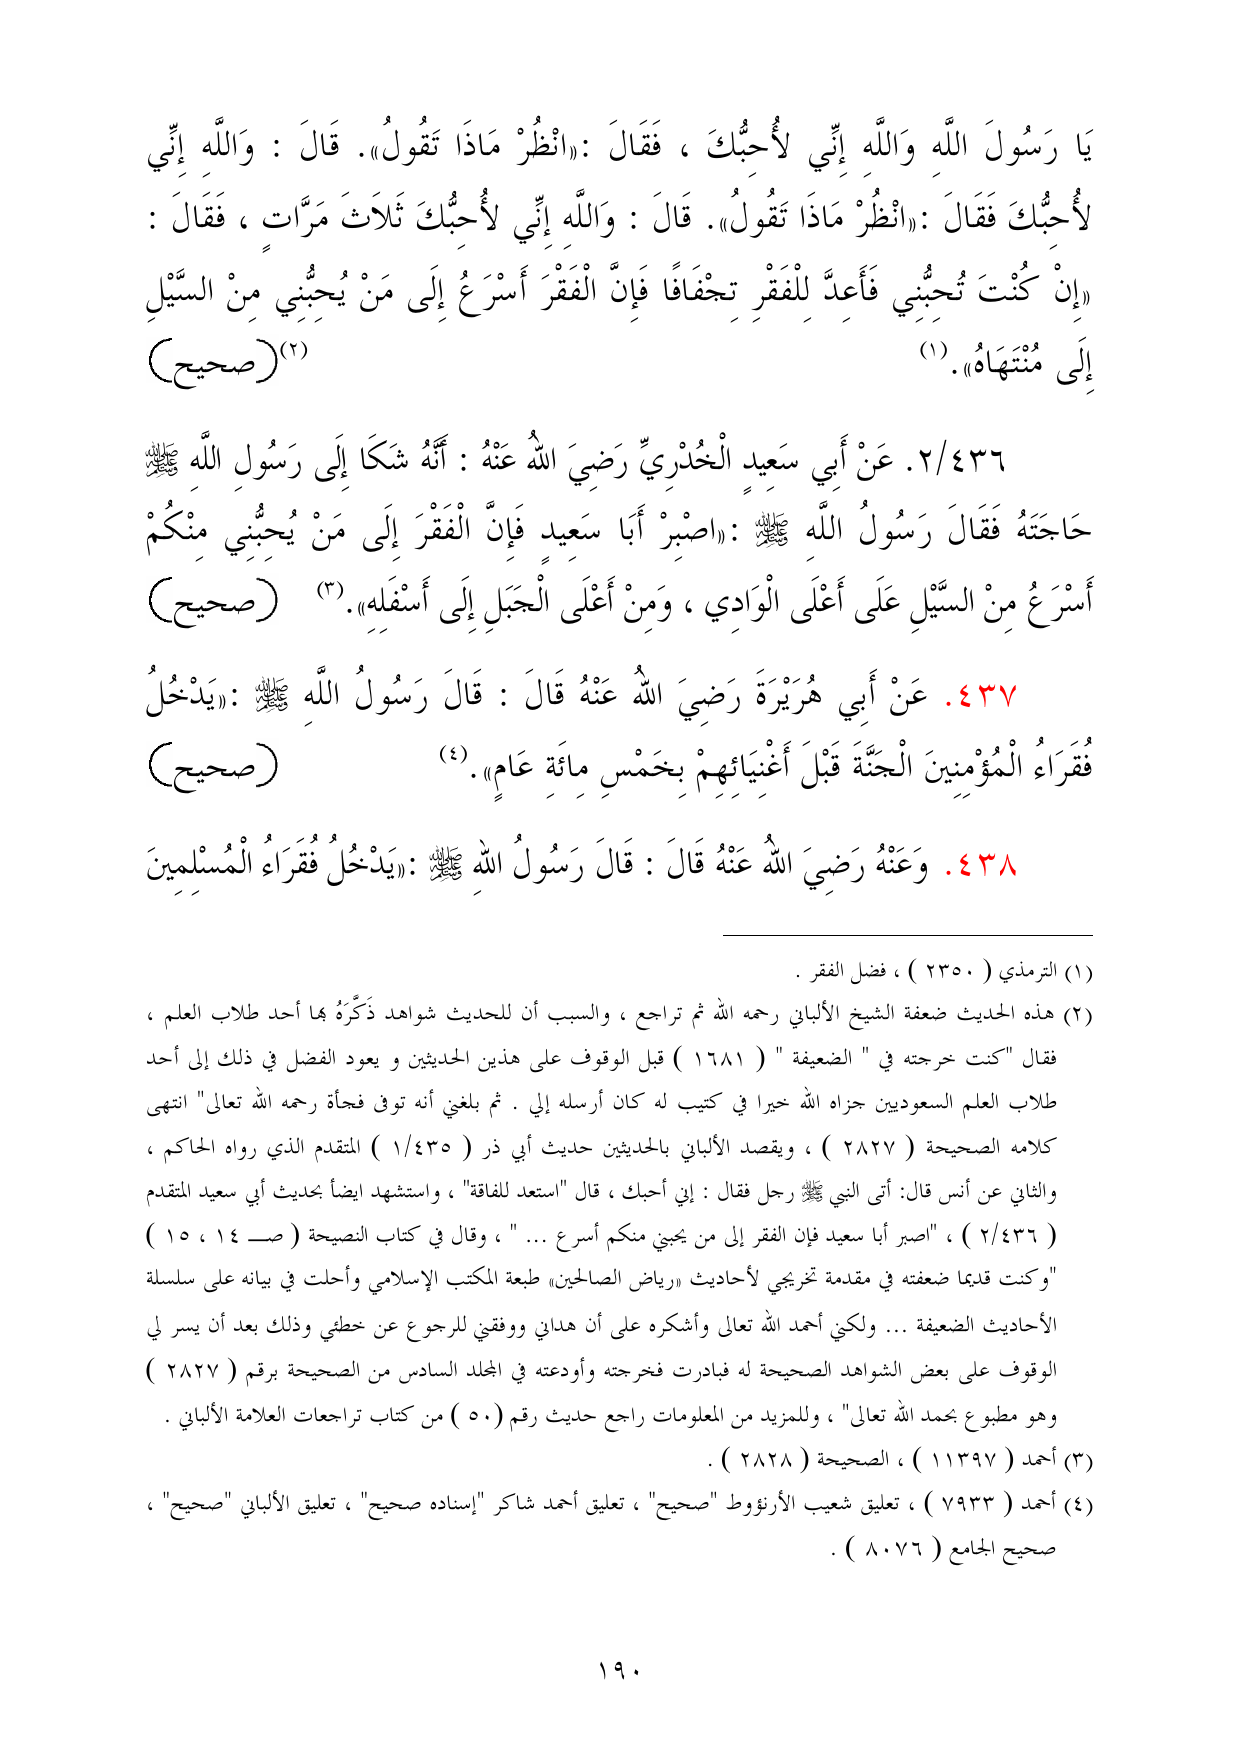 يَا رَسُولَ اللَّهِ وَاللَّهِ إِنِّي لأُحِبُّكَ ، فَقَالَ :«انْظُرْ مَاذَا تَقُولُ». قَالَ : وَاللَّهِ إِنِّي
لأُحِبُّكَ فَقَالَ :«انْظُرْ مَاذَا تَقُولُ». قَالَ : وَاللَّهِ إِنِّي لأُحِبُّكَ ثَلاَثَ مَرَّاتٍ ، فَقَالَ :
«إِنْ كُنْتَ تُحِبُّنِي فَأَعِدَّ لِلْفَقْرِ تِجْفَافًا فَإِنَّ الْفَقْرَ أَسْرَعُ إِلَى مَنْ يُحِبُّنِي مِنْ السَّيْلِ
إِلَى مُنْتَهَاهُ».(١) (٢)(صحيح)
٢/٤٣٦. عَنْ أَبِي سَعِيدٍ الْخُدْرِيِّ رَضِيَ اللهُ عَنْهُ : أَنَّهُ شَكَا إِلَى رَسُولِ اللَّهِ ﷺ
حَاجَتَهُ فَقَالَ رَسُولُ اللَّهِ ﷺ :«اصْبِرْ أَبَا سَعِيدٍ فَإِنَّ الْفَقْرَ إِلَى مَنْ يُحِبُّنِي مِنْكُمْ
أَسْرَعُ مِنْ السَّيْلِ عَلَى أَعْلَى الْوَادِي ، وَمِنْ أَعْلَى الْجَبَلِ إِلَى أَسْفَلِهِ».(٣) (صحيح)
٤٣٧. عَنْ أَبِي هُرَيْرَةَ رَضِيَ اللهُ عَنْهُ قَالَ : قَالَ رَسُولُ اللَّهِ ﷺ :«يَدْخُلُ
فُقَرَاءُ الْمُؤْمِنِينَ الْجَنَّةَ قَبْلَ أَغْنِيَائِهِمْ بِخَمْسِ مِائَةِ عَامٍ».(٤) (صحيح)
٤٣٨. وَعَنْهُ رَضِيَ اللهُ عَنْهُ قَالَ : قَالَ رَسُولُ اللهِ ﷺ :«يَدْخُلُ فُقَرَاءُ الْمُسْلِمِينَ
(١) الترمذي ( ٢٣٥٠ ) ، فضل الفقر .
(٢) هذه الحديث ضعفة الشيخ الألباني رحمه الله ثم تراجع ، والسبب أن للحديث شواهد ذَكَّرَهُ بها أحد طلاب العلم ،
فقال "كنت خرجته في " الضعيفة " ( ١٦٨١ ) قبل الوقوف على هذين الحديثين و يعود الفضل في ذلك إلى أحد
طلاب العلم السعوديين جزاه الله خيرا في كتيب له كان أرسله إلي . ثم بلغني أنه توفى فجأة رحمه الله تعالى" انتهى
كلامه الصحيحة ( ٢٨٢٧ ) ، ويقصد الألباني بالحديثين حديث أبي ذر ( ١/٤٣٥ ) المتقدم الذي رواه الحاكم ،
والثاني عن أنس قال: أتى النبي ﷺ رجل فقال : إني أحبك ، قال "استعد للفاقة" ، واستشهد ايضاً بحديث أبي سعيد المتقدم
( ٢/٤٣٦ ) ، "اصبر أبا سعيد فإن الفقر إلى من يحبني منكم أسرع ... " ، وقال في كتاب النصيحة ( صـــ ١٤ ، ١٥ )
"وكنت قديما ضعفته في مقدمة تخريجي لأحاديث «رياض الصالحين» طبعة المكتب الإسلامي وأحلت في بيانه على سلسلة
الأحاديث الضعيفة ... ولكني أحمد الله تعالى وأشكره على أن هداني ووفقني للرجوع عن خطئي وذلك بعد أن يسر لي
الوقوف على بعض الشواهد الصحيحة له فبادرت فخرجته وأودعته في المجلد السادس من الصحيحة برقم ( ٢٨٢٧ )
وهو مطبوع بحمد الله تعالى" ، وللمزيد من المعلومات راجع حديث رقم (٥٠ ) من كتاب تراجعات العلامة الألباني .
(٣) أحمد ( ١١٣٩٧ ) ، الصحيحة ( ٢٨٢٨ ) .
(٤) أحمد ( ٧٩٣٣ ) ، تعليق شعيب الأرنؤوط "صحيح" ، تعليق أحمد شاكر "إسناده صحيح" ، تعليق الألباني "صحيح" ،
صحيح الجامع ( ٨٠٧٦ ) .
١٩٠